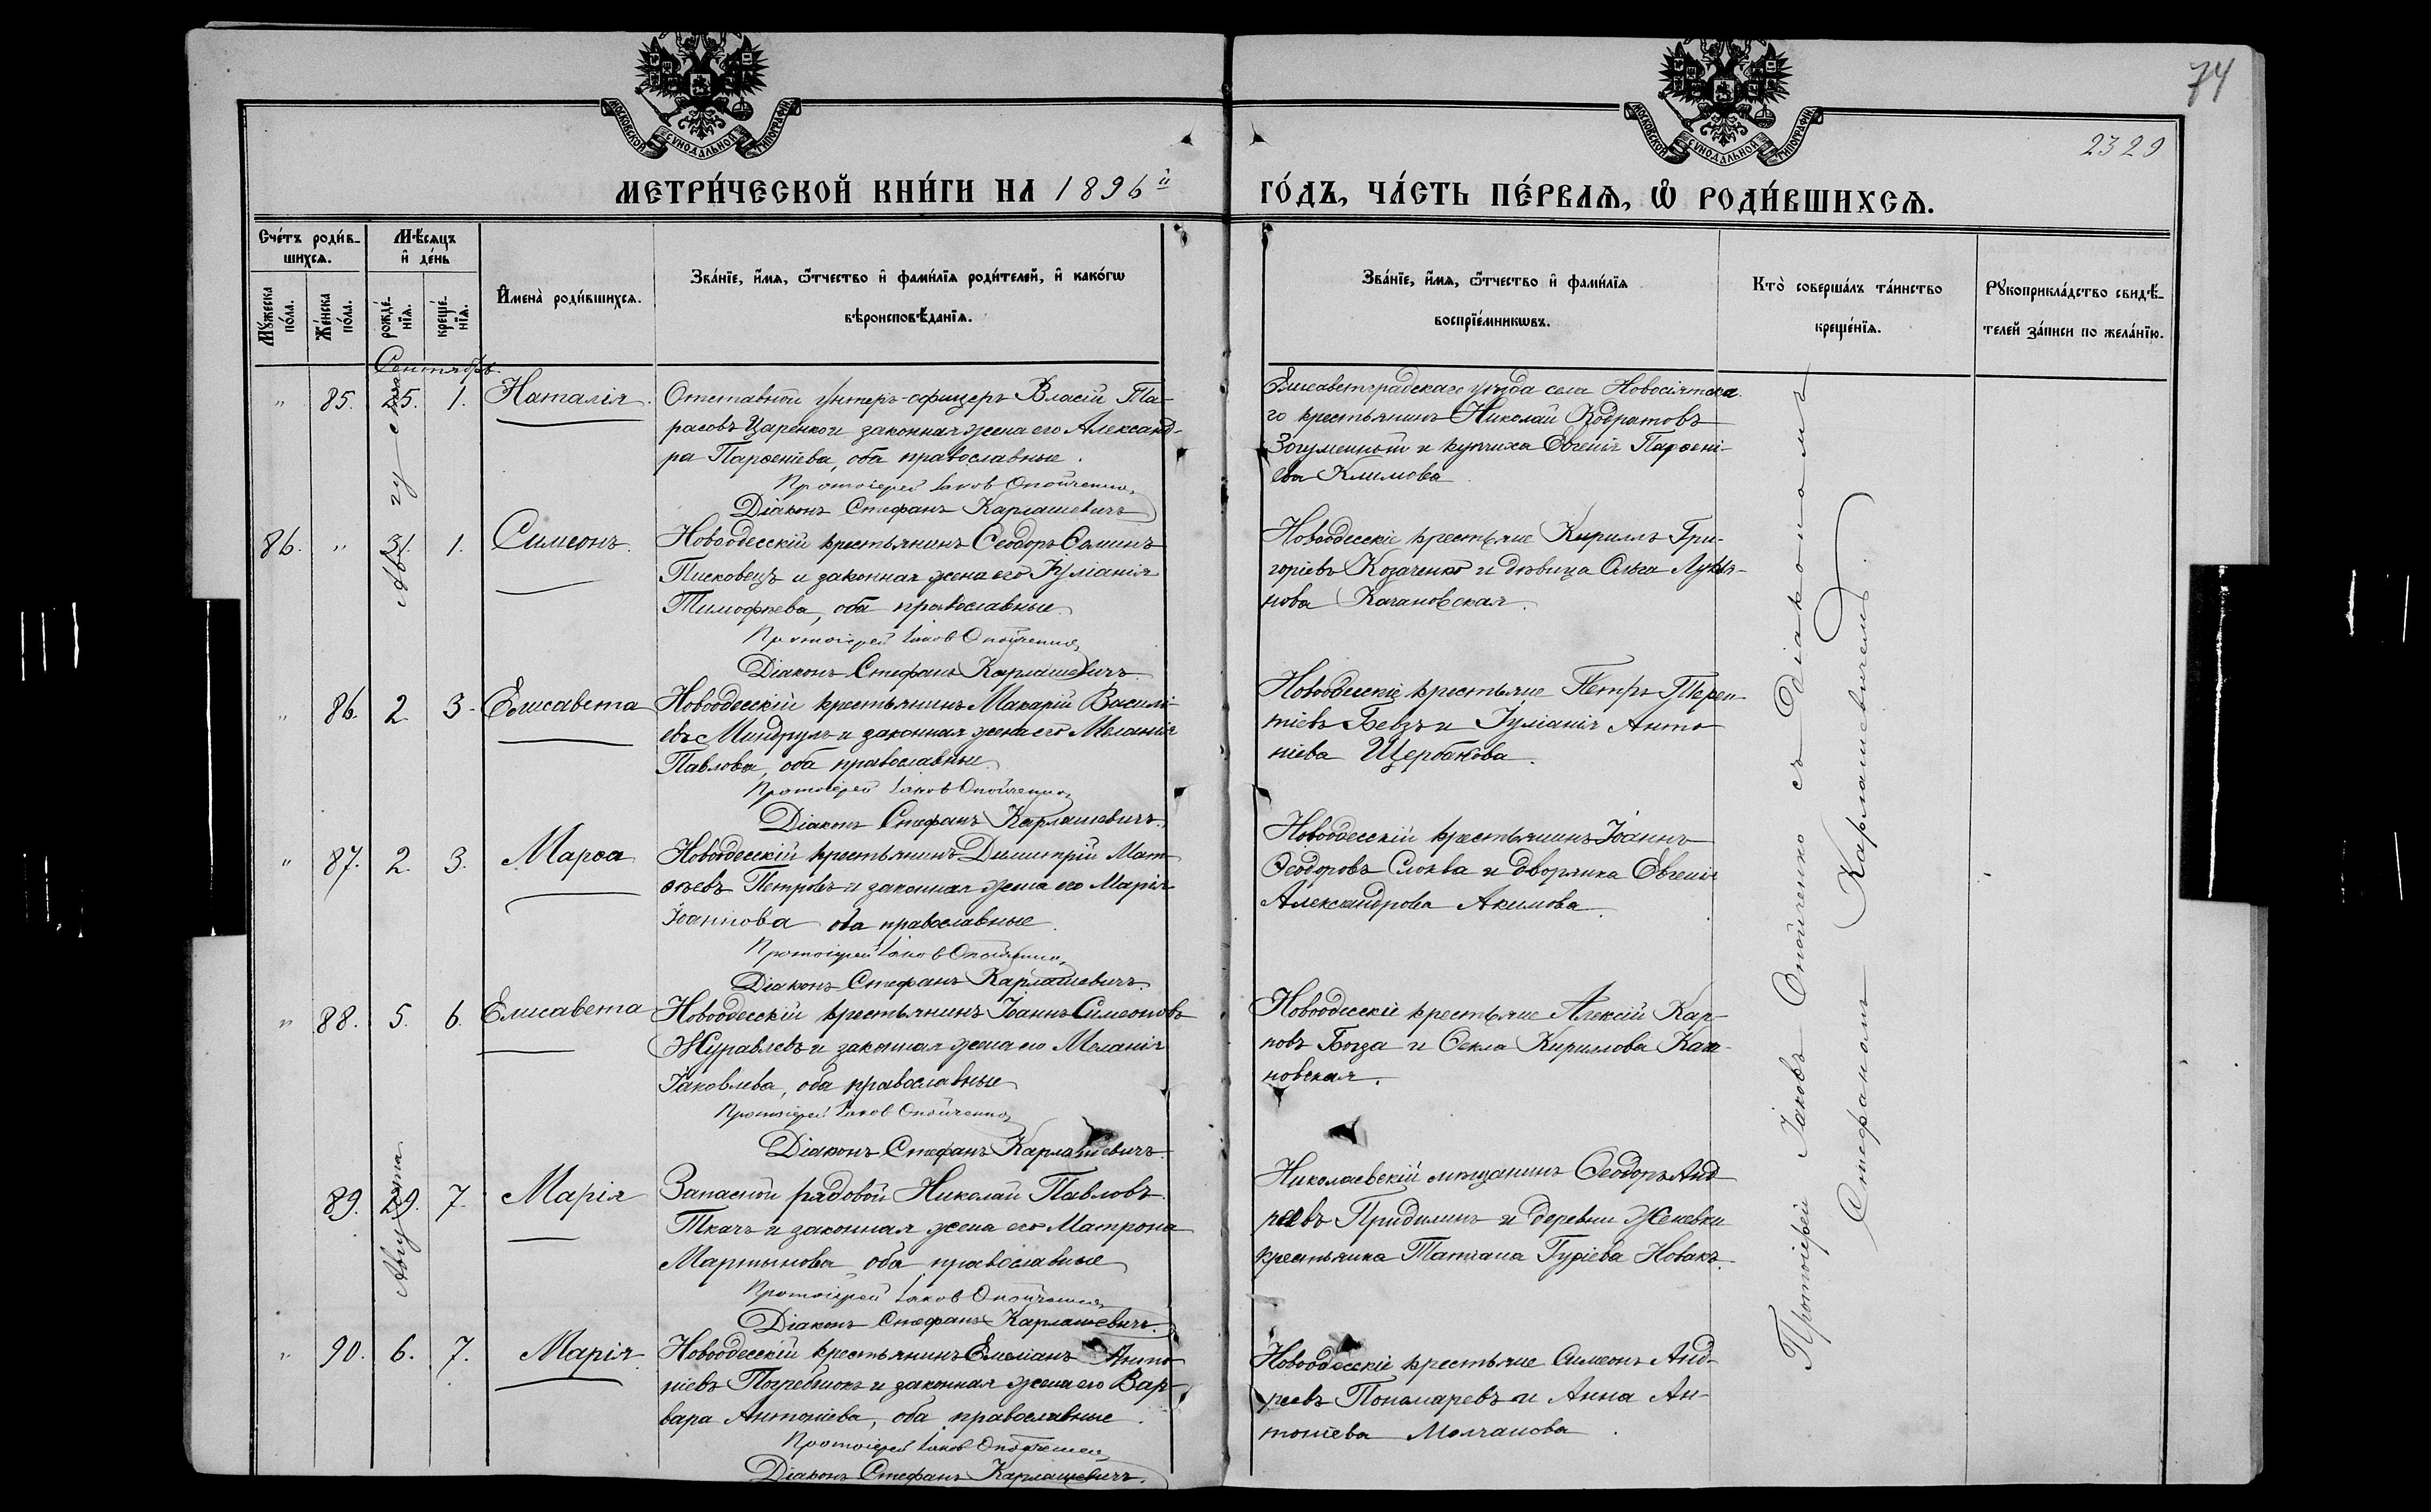 74
2329
МОСКОВСКОЙ СѴНОДАЛЬНОЙ ТИПОГРАФІИ
МОСКОВСКОЙ СѴНОДАЛЬНОЙ ТИПОГРАФІИ
МЕТРИ́ЧЕСКОЙ КНИ́ГИ НА 1896й ГО́ДЪ, ЧА́СТЬ ПЕ́РВАѦ, Ѡ҆ РОДИ́ВШИХСѦ.
Сче́тъ роди́в-
шихсѧ.
Мꙋ́жеска по́ла.
Же́нска по́ла.
Мѣ́сѧцъ
и҆ де́нь
рожде́-нїѧ.
креще́-нїѧ.
И҆мена̀ роди́вшихсѧ.
Зва́нїе, и҆́мѧ, ѻ҆́тчество и҆ фами́лїѧ роди́телей, и҆ како́гѡ
вѣроисповѣ́данїѧ.
Зва́нїе, и҆́мѧ, ѻ҆́тчество и҆ фами́лїѧ
воспрїе́мникѡвъ.
Кто̀ соверша́лъ та́инство
креще́нїѧ.
Рꙋкоприкла́дство свидѣ́-
телей за́писи по жела́нїю.
Сентябрь
" 85. 25. 1. Наталія.
Августа
Отставной унтеръ-офицеръ Власій Та-
расовъ Царенко и законная жена его Александ-
ра Парѳеніева, оба православные.
Протоіерей Іаков Опойченко
Діаконъ Стефанъ Карлашевичъ
Елисаветградскаго уѣзда села Новосіятска-
го крестьянинъ Николай Кодратовъ
Згуменный и купчиха Евгенія Парѳені-
ева Климова
86. " 31. 1. Симеонъ.
Новоодесскій крестьянинъ Ѳеодоръ Ѳоминъ
Писковецъ и законная жена его Іуліанія
Тимофѣева, оба православные
Протоіерей Іаков Опойченко
Діаконъ Стефанъ Карлашевичъ.
Новоодесскіе крестьяне Кириллъ Гри-
горіевъ Козаченко и дѣвица Ольга Лукія-
нова Качановская.
" 86. 2. 3. Елисавета
Новоодесскій крестьянинъ Макарій Василі-
евъ Миндрулъ и законная жена его Меланія
Павлова, оба православные
Протоіерей Іаков Опойченко
Діаконъ Стефанъ Карлашевичъ.
Новоодесскіе крестьяне Петръ Терен-
тіевъ Бевзъ и Іуліанія Анто-
ніева Щербакова.
" 87. 2. 3. Марѳа
Новоодесскій крестьянинъ Димитрій Мат-
ѳѣевъ Петровъ и законная жена его Марія
Іоаннова оба православные.
Протоіерей Іаков Опойченко
Діаконъ Стефанъ Карлашевичъ.
Новоодесскій крестьянинъ Іоаннъ
Ѳеодоровъ Слюсва и дворянка Евгенія
Александрова Акимова.
" 88. 5. 6. Елисавета
Новоодесскій крестьянинъ Іоаннъ Симеоновъ
Журавлевъ и законная жена его Меланія
Іаковлева, оба православные
Протоіерей Іаков Опойченко
Діаконъ Стефанъ Карлашевичъ.
Новоодесскіе крестьяне Алексій Кар-
повъ и Ѳекла Кириллова
новская.
89. 29. 7. Марія
Августа
Запасной рядовой Николай Павловъ
Ткачъ и законная жена его Матрона
Мартынова оба православные
Протоіерей Іаков Опойченко
Діаконъ Стефанъ Карлашевичъ.
Николаевскій мѣщанинъ Ѳеодоръ Анд-
реевъ Придилинъ и деревни Женевки
крестьянка Татіана Гуріева Новакъ.
" 90. 6. 7. Марія
Новоодесскій крестьянинъ Емеліанъ Анто-
ніевъ Погребнюкъ и законная жена его Вар-
вара Антоніева, оба православные.
Протоіерей Іаков Опойченко
Діаконъ Стефанъ Карлашевичъ.
Новоодесскіе крестьяне Симеонъ Анд-
реевъ Пономаревъ и Анна Ан-
тоніева Молчанова.
Протоіерей Іаковъ Опойченко съ діакономъ
Стефаномъ Карлашевичемъ.